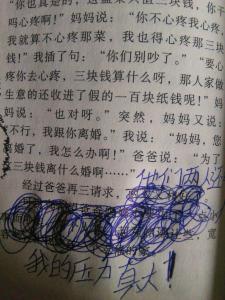 "你也真是的，这盘菜只值三块钱，你干
吗心疼啊！"妈妈说："你不心疼我心疼，
我就算不心疼那菜，我也得心疼那三块
钱！"我插了句："你们别吵了。""要心
疼你去心疼，三块钱算什么呀，那人家做
生意的还收进了假的一百块纸钱呢！"妈
妈说："也对呀。"突然，妈妈又说：
不行，我跟你离婚。"我说："妈妈，您
离婚了，我怎么办啊！"爸爸说："为了
三块钱离什么婚啊……"
经过爸爸再三请求，
他们两人还
我的压力真大！